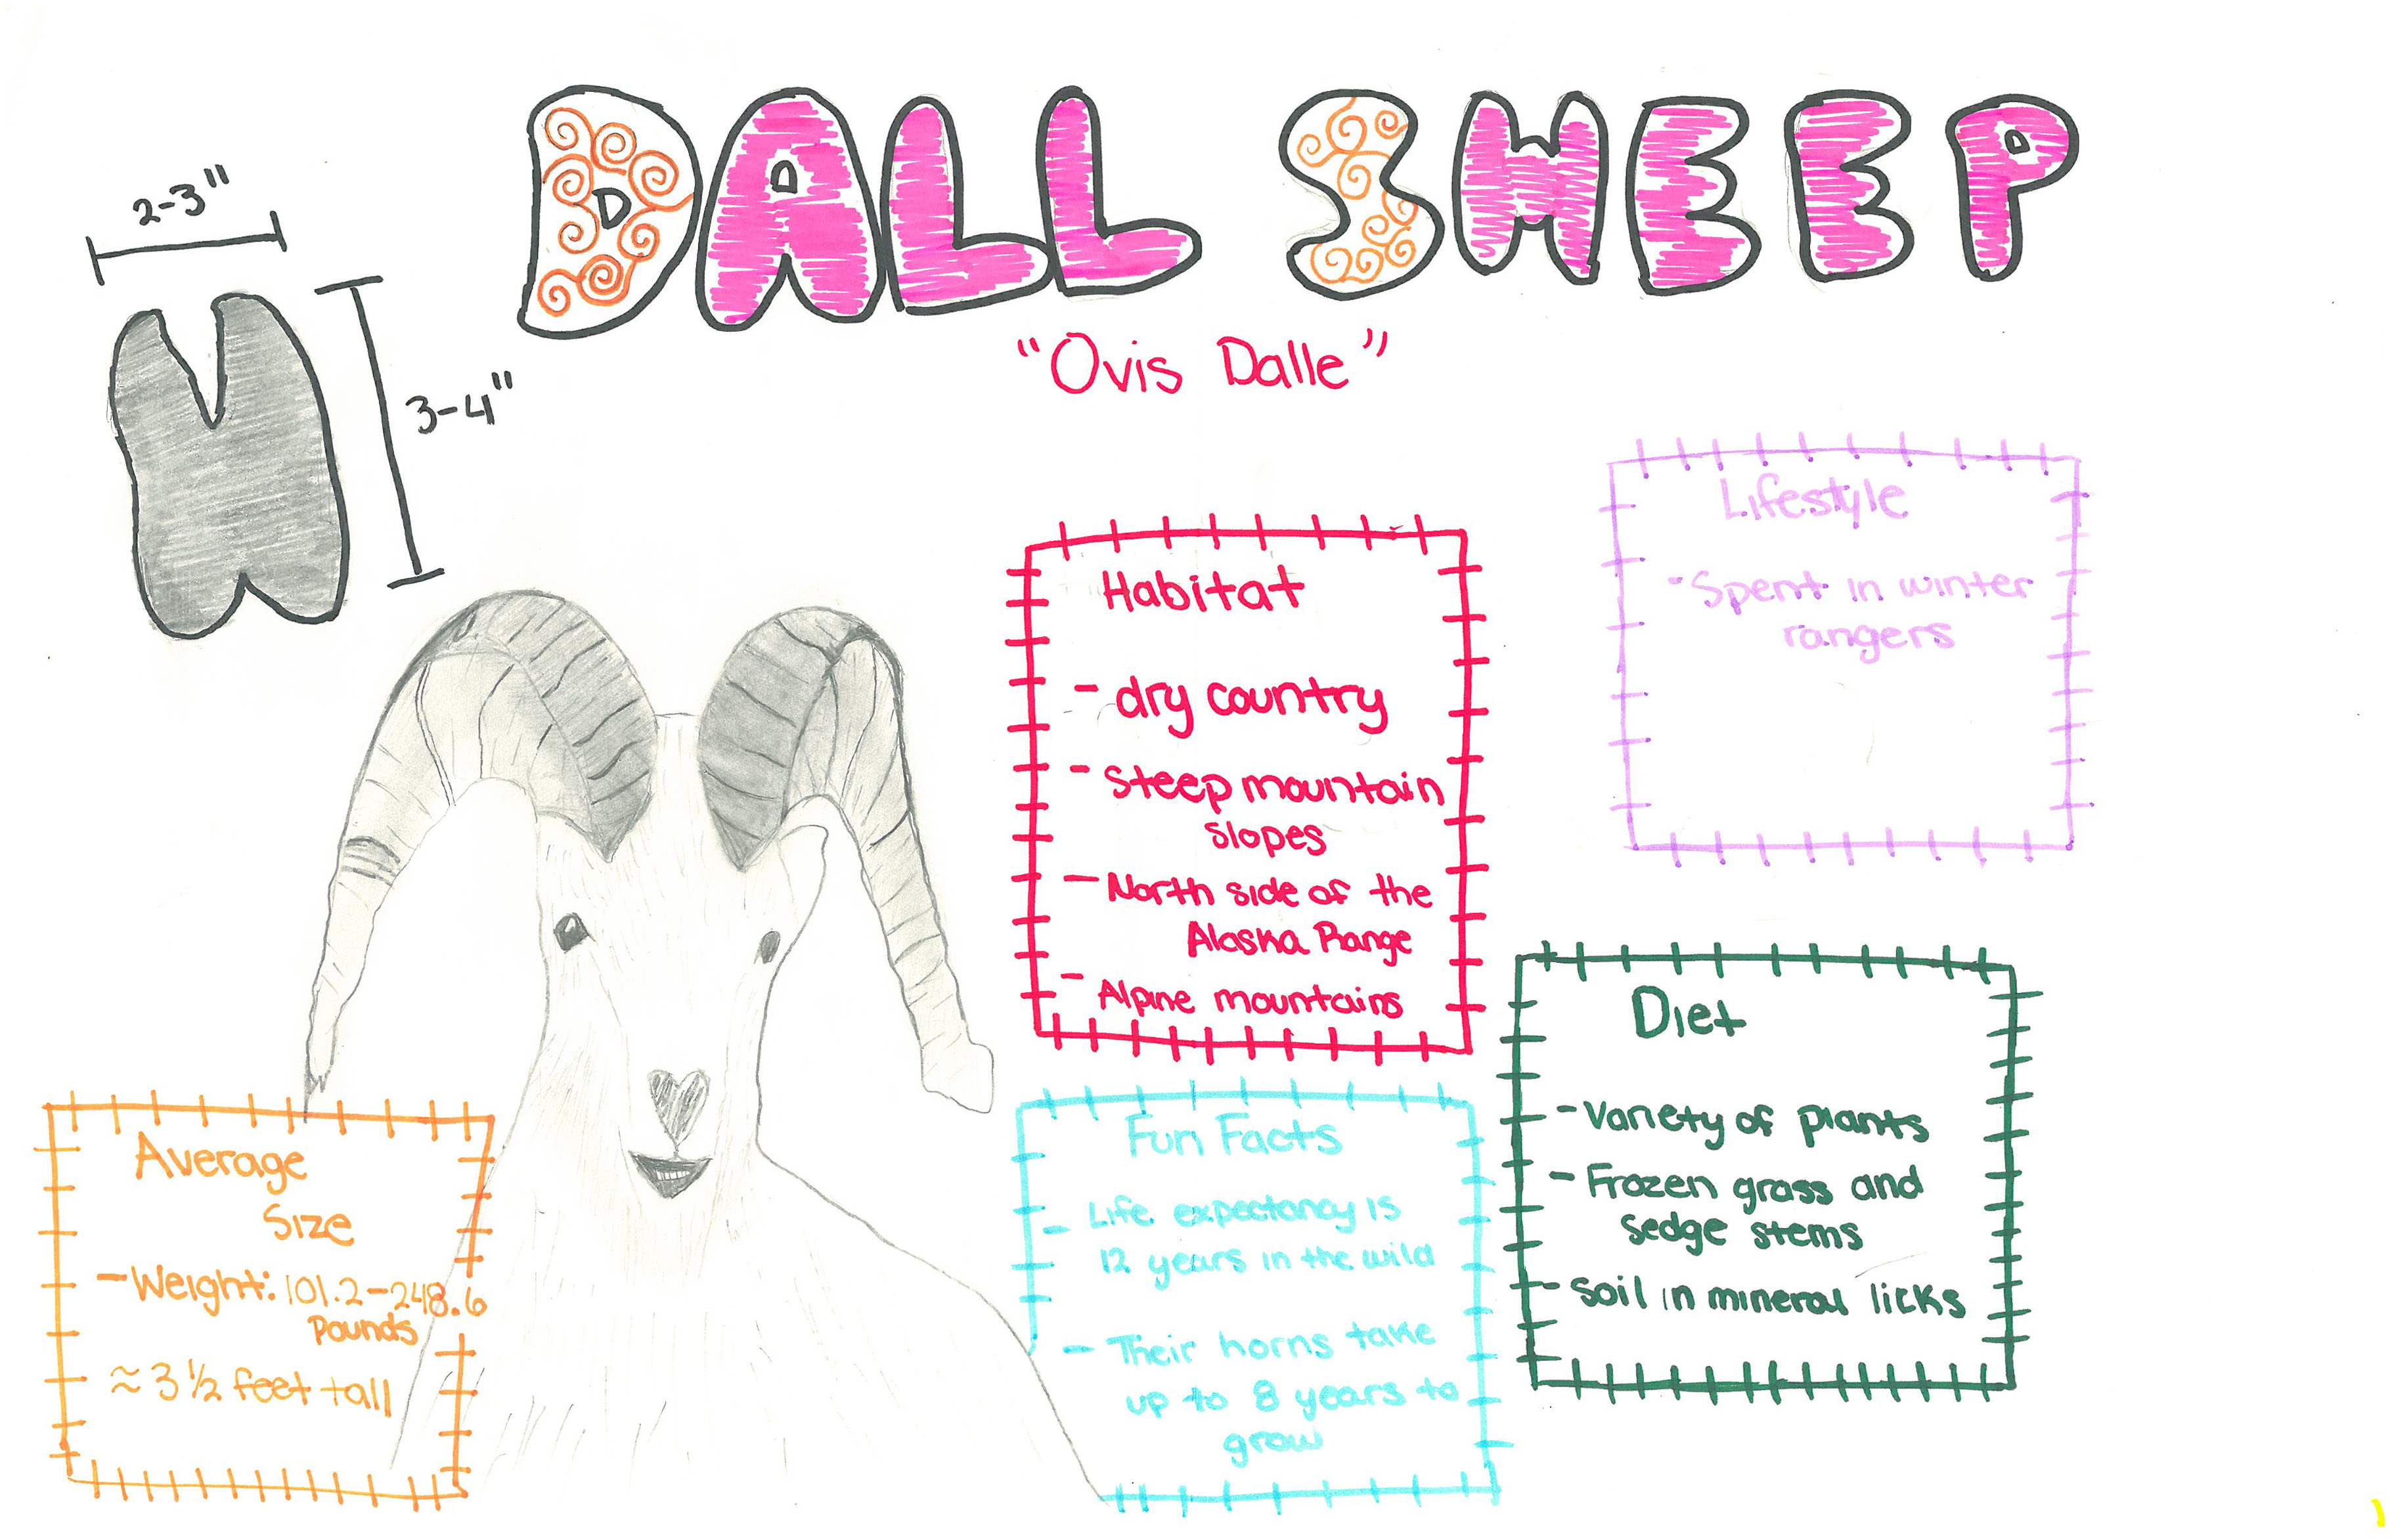 DALL SHEEP
"Ovis Dalle"
2-3"
3-4"
Habitat
- dry country
- Steep mountain
slopes
- North side of the
Alaska Range
- Alpine mountains
Lifestyle
- Spent in winter
rangers
Average
Size
- Weight: 101.2-248.6
Pounds
≈ 3 1/2 feet tall
Fun Facts
- Life expectancy is
12 years in the wild
- Their horns take
up to 8 years to
grow
Diet
- Variety of plants
- Frozen grass and
sedge stems
- Soil in mineral licks